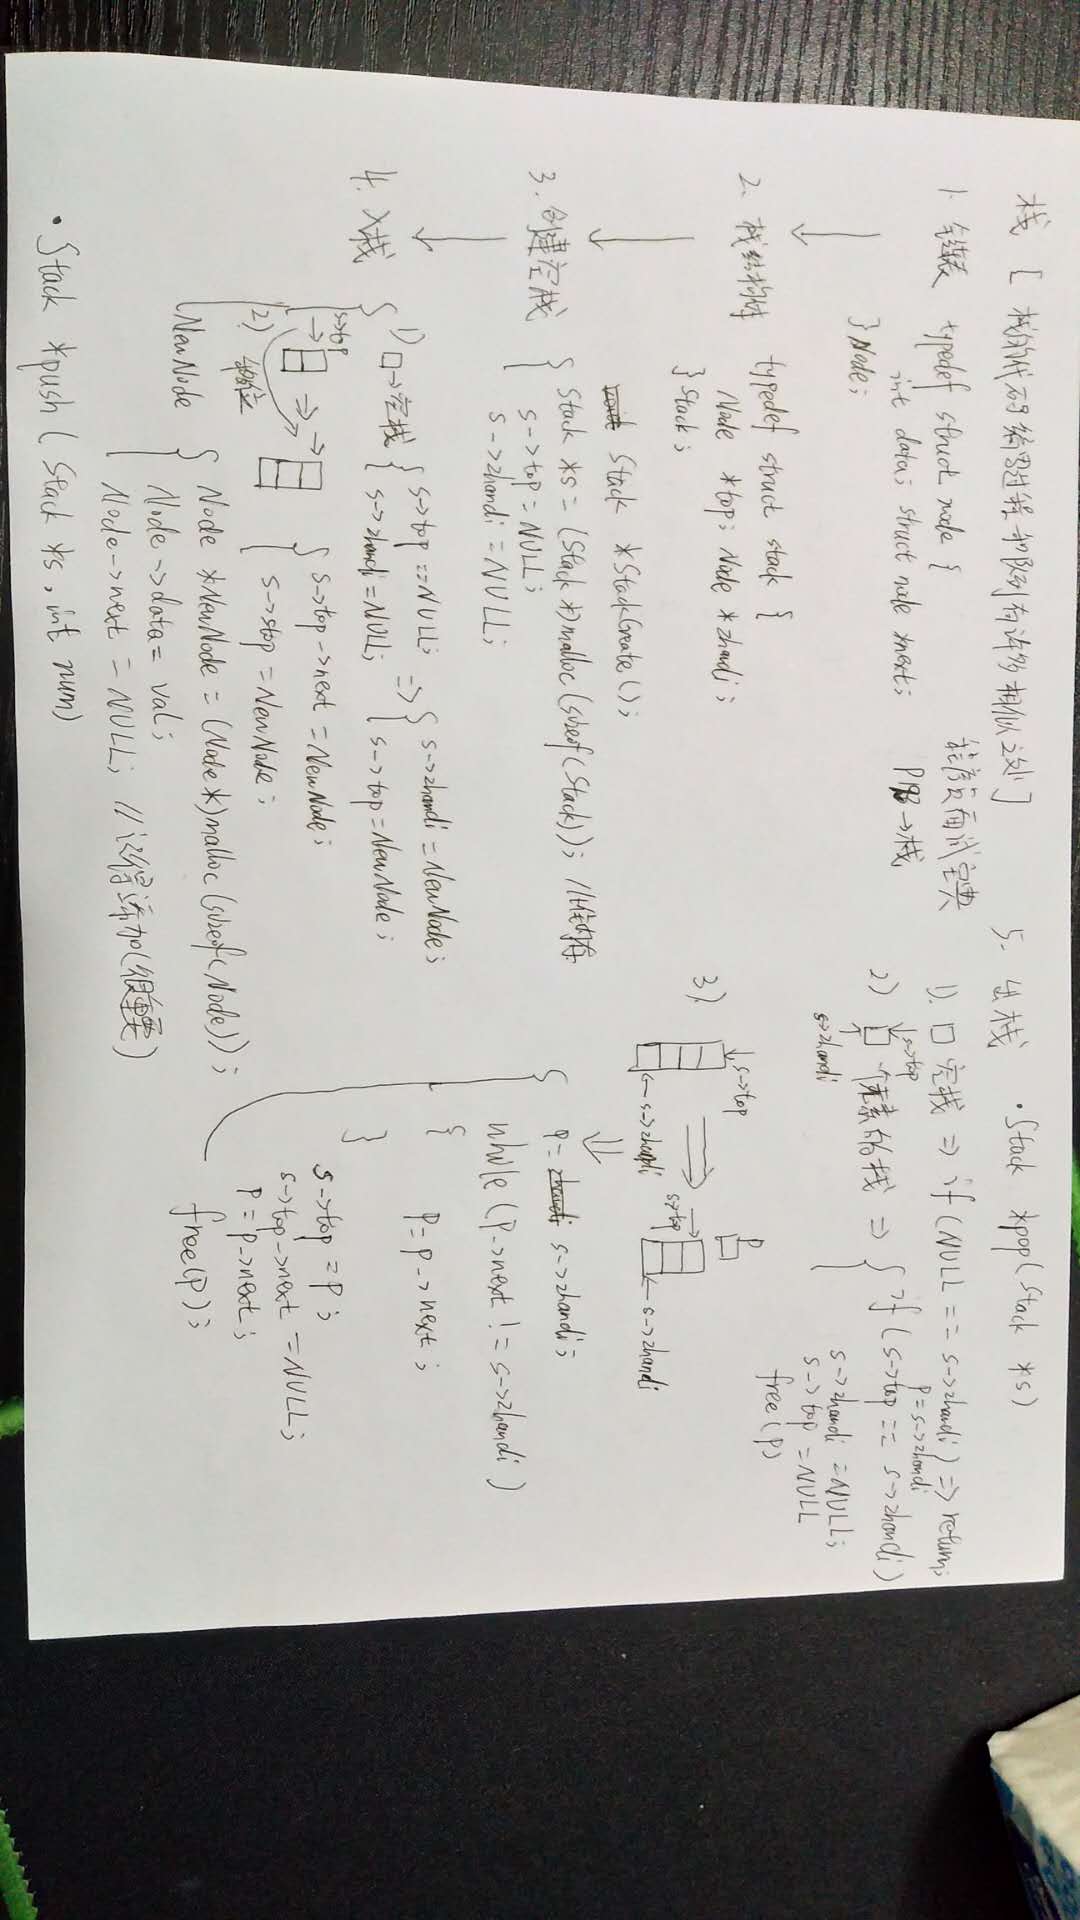 栈 [ 栈的代码编写过程和队列有许多相似之处 ]
程序员面试宝典
P193 → 栈
1. 链表 typedef struct node {
int data; struct node *next;
} Node;
2. 栈结构体 typedef struct stack {
Node *top; Node *zhandi;
} Stack;
Stack *StackCreate();
3. 创建空栈 { Stack *s = (Stack *)malloc(sizeof(Stack)); //内存
s->top = NULL;
s->zhandi = NULL;
4. 入栈
1) □→空栈 { s->top == NULL; => { s->zhandi = NewNode;
s->zhandi = NULL; s->top = NewNode;
s->top
2) { s->top->next = NewNode;
s->stop = NewNode;
NewNode { Node *NewNode = (Node*)malloc(sizeof(Node));
Node->data = val;
Node->next = NULL; // 记得添加(很重要)
· Stack *push ( Stack *s, int num)
5. 出栈 · Stack *pop( Stack *s)
1). □ 空栈 => if (NULL == s->zhandi) => return;
p = s->zhandi
2) s->top 个元素的栈 => { if (s->top == s->zhandi)
s->zhandi
s->zhandi = NULL;
s->top = NULL
free(p)
3) s->top p
s->top
s->zhandi s->zhandi
p = s->zhandi;
while (p->next != s->zhandi)
{
p = p->next;
}
s->top = p;
s->top->next = NULL;
p = p->next;
free(p);